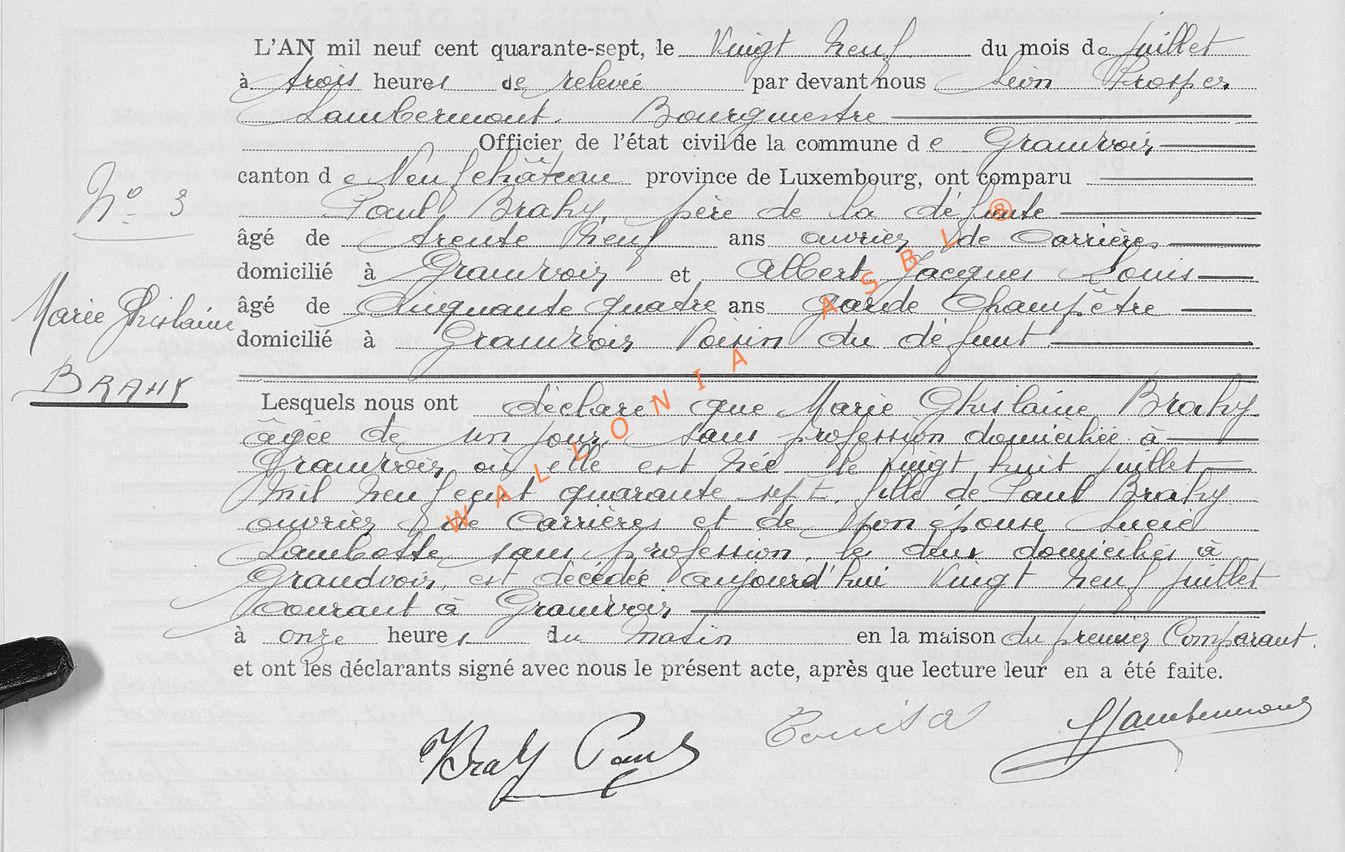 L'AN mil neuf cent quarante-sept, le Vingt Neuf du mois de juillet
à trois heures de relevée par devant nous Léon Prosper
Lambermont. Bourgmestre
Officier de l'état civil de la commune de Grandvoir
N° 3
canton de Neufchâteau province de Luxembourg, ont comparu
Paul Brahy, père de la défunte
âgé de trente Neuf ans ouvrier de Carrières
domicilié à Grandvoir et Albert Jacques Louis
Marie Ghislaine
BRAHY
âgé de Cinquante quatre ans garde Champêtre
domicilié à Grandvoir Voisin du défunt
Lesquels nous ont déclaré que Marie Ghislaine Brahy
âgée de un jour, sans profession domiciliée à
Grandvoir où elle est née le vingt huit juillet
mil neuf cent quarante sept. fille de Paul Brahy
ouvrier de Carrières et de son épouse Lucie
Lambotte sans profession les deux domiciliés à
Grandvoir, est décédée aujourd'hui Vingt Neuf juillet
courant à Grandvoir
à onze heures du matin en la maison du premier Comparant.
et ont les déclarants signé avec nous le présent acte, après que lecture leur en a été faite.
Brahy Paul
Louis A
Lambermont
WALLONIA ASBL ®